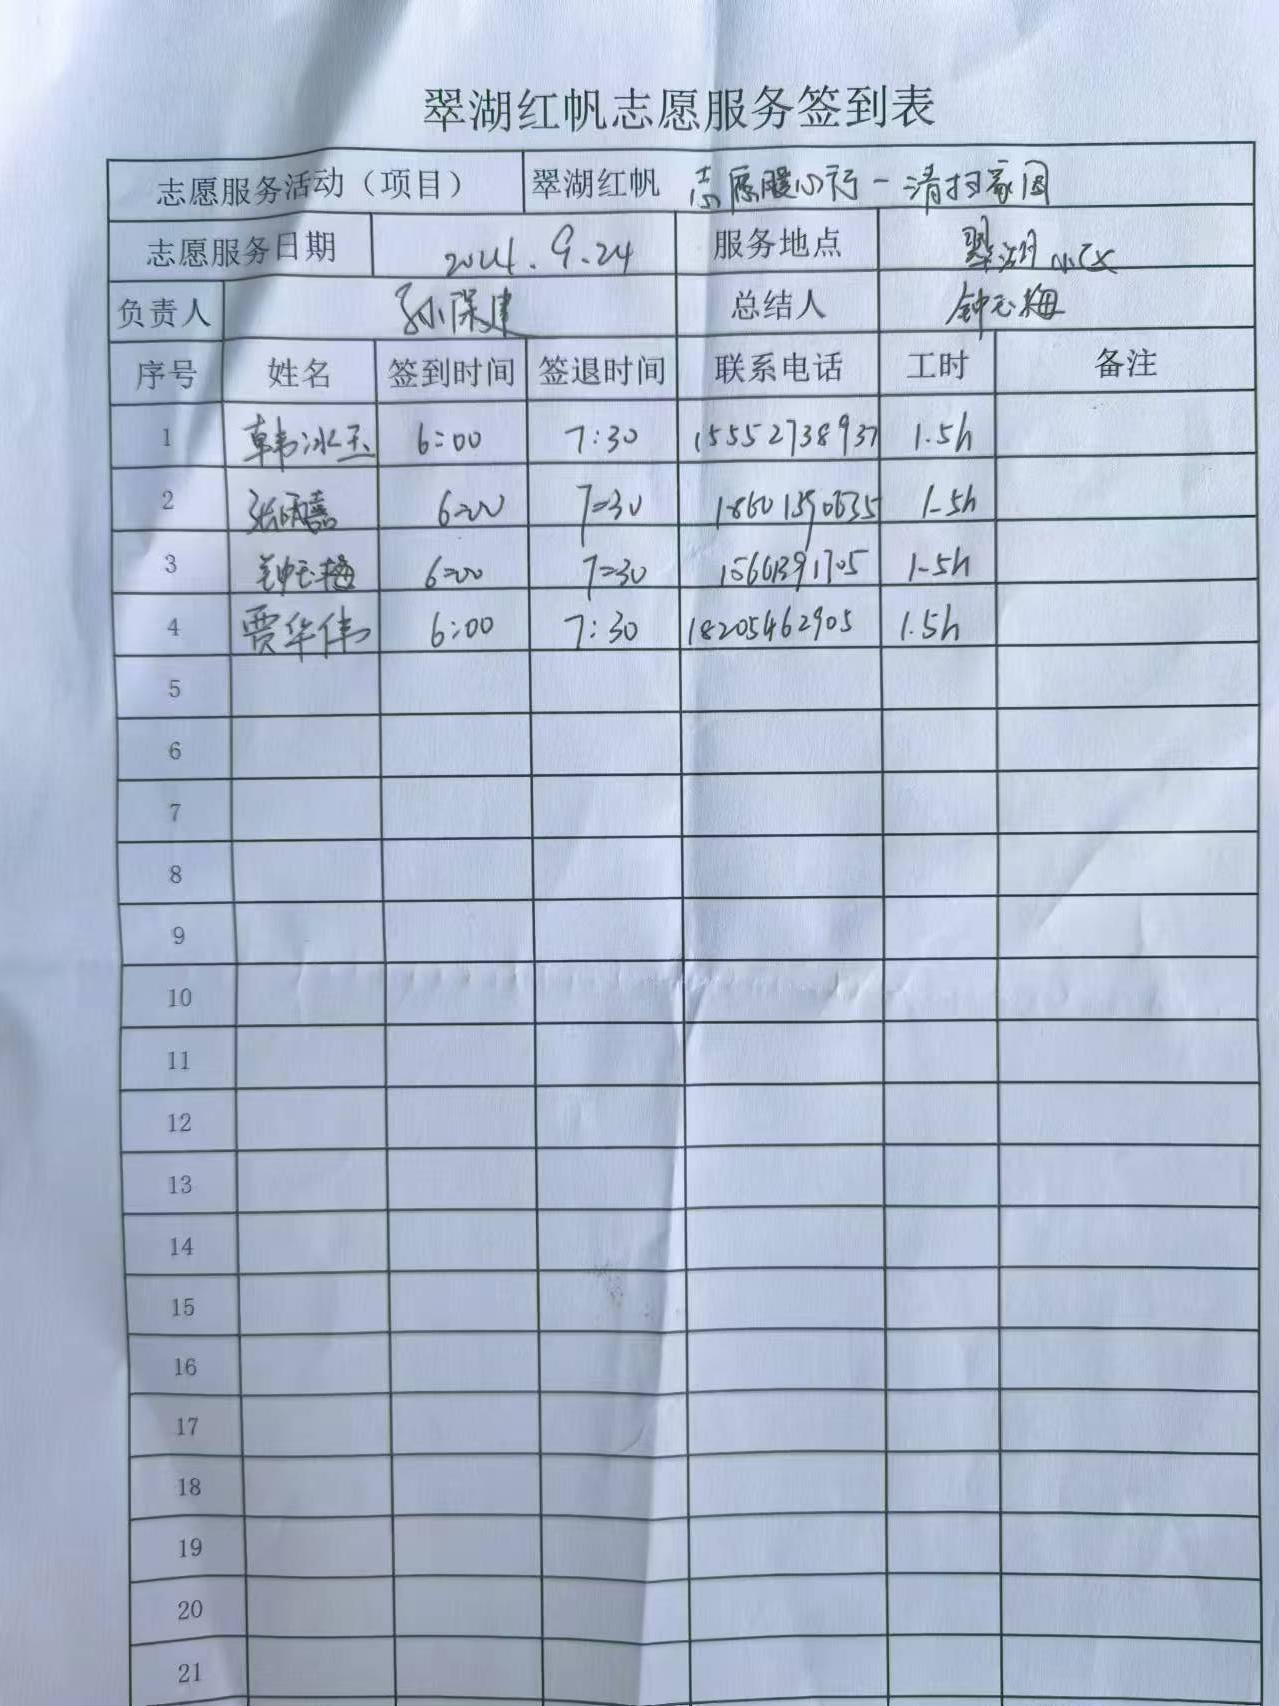 翠湖红帆志愿服务签到表
志愿服务活动（项目） 翠湖红帆 志愿暖心行-清扫家园
志愿服务日期 2024.9.24 服务地点 翠湖小区
负责人 孙保建 总结人 钟玉梅
序号 姓名 签到时间 签退时间 联系电话 工时 备注
1 韩冰玉 6:00 7:30 15552738937 1.5h
2 6:00 7:30 1.5h
3 钟玉梅 6:00 7:30 1.5h
4 贾华伟 6:00 7:30 18205462905 1.5h
5
6
7
8
9
10
11
12
13
14
15
16
17
18
19
20
21